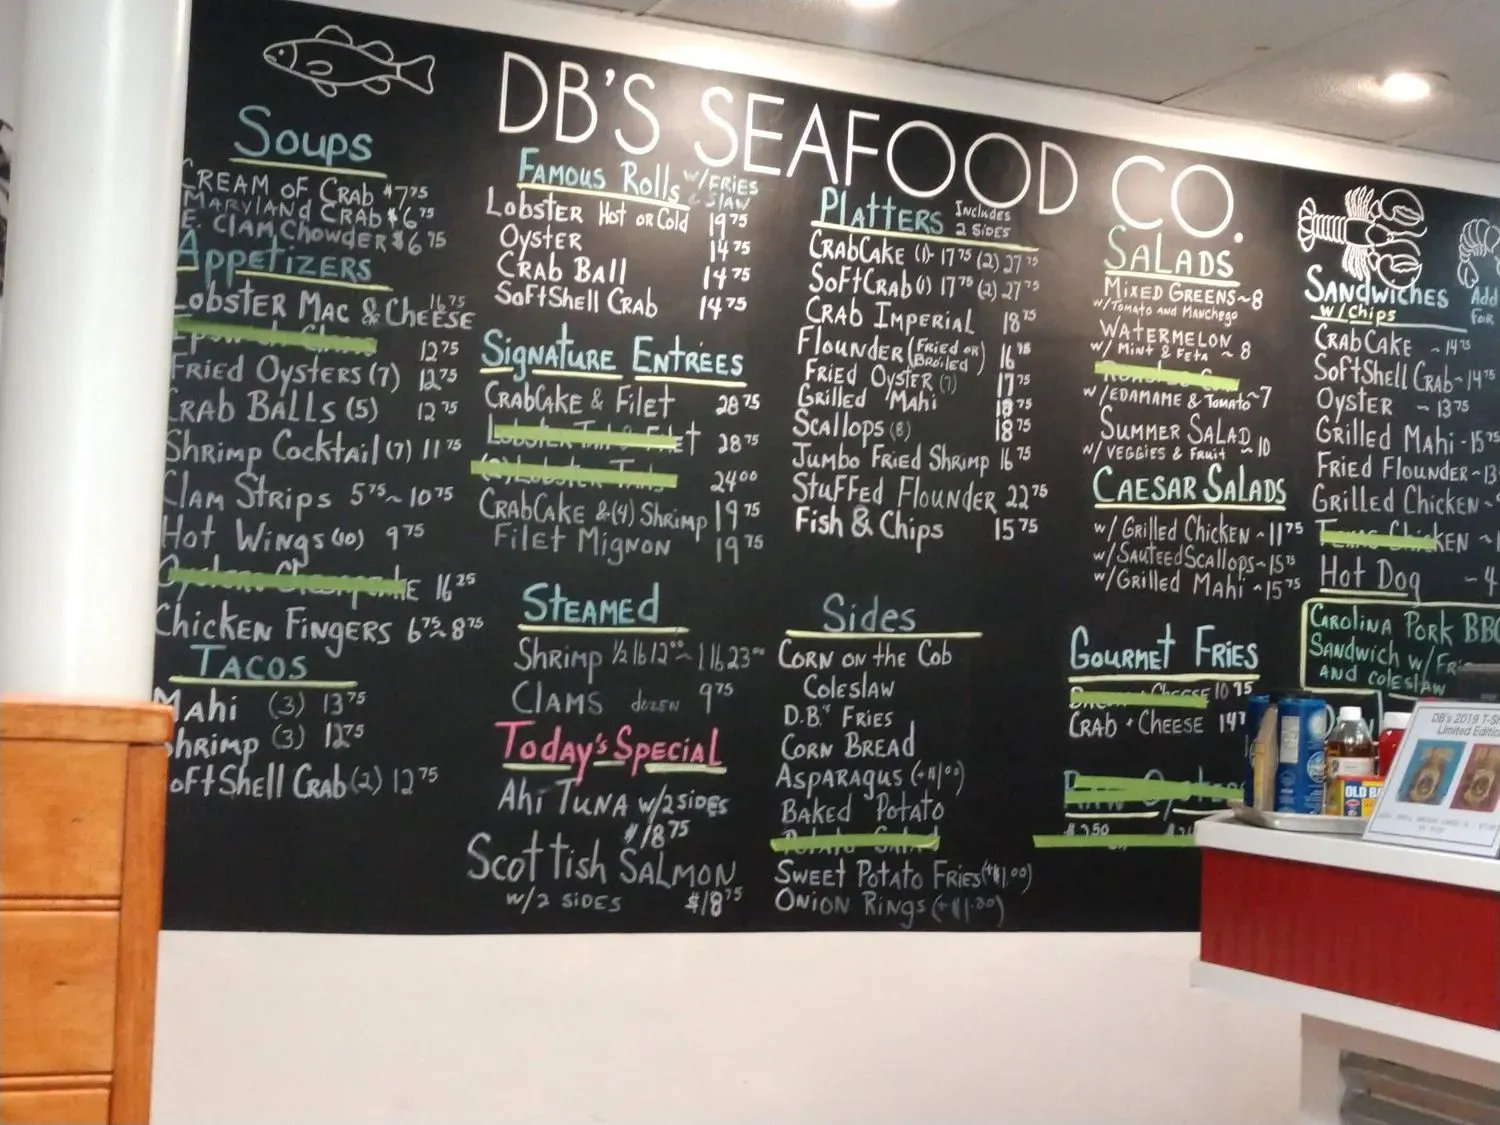 DB'S SEAFOOD CO.
Soups
CREAM OF CRAB $7.75
MARYLAND CRAB $6.75
E. CLAM CHOWDER $6.75
APPETIZERS
LOBSTER MAC & CHEESE 16.75
12.75
FRIED OYSTERS (7) 12.75
CRAB BALLS (5) 12.75
SHRIMP COCKTAIL (7) 11.75
CLAM STRIPS 5.75~10.75
HOT WINGS (10) 9.75
16.25
CHICKEN FINGERS 6.75~8.75
TACOS
MAHI (3) 13.75
SHRIMP (3) 12.75
SOFTSHELL CRAB (2) 12.75
FAMOUS ROLLS W/FRIES & SLAW
LOBSTER HOT OR COLD 19.75
OYSTER 14.75
CRAB BALL 14.75
SOFTSHELL CRAB 14.75
SIGNATURE ENTRÉES
CRABCAKE & FILET 28.75
LOBSTER TAIL & FILET 28.75
(2) LOBSTER TAILS 24.00
CRABCAKE & (4) SHRIMP 19.75
FILET MIGNON 19.75
STEAMED
SHRIMP 1/2 lb 12.00 ~ 1 lb 23.00
CLAMS DOZEN 9.75
Today's Special
AHI TUNA W/2 SIDES
$18.75
SCOTTISH SALMON
W/2 SIDES $18.75
PLATTERS INCLUDES 2 SIDES
CRABCAKE (1)- 17.75 (2) 27.75
SOFTCRAB (1) 17.75 (2) 27.75
CRAB IMPERIAL 18.75
FLOUNDER (FRIED OR BROILED) 16.75
FRIED OYSTER (7) 17.75
GRILLED MAHI 18.75
SCALLOPS (8) 18.75
JUMBO FRIED SHRIMP 16.75
STUFFED FLOUNDER 22.75
FISH & CHIPS 15.75
Sides
CORN ON THE COB
COLESLAW
D.B.'s FRIES
CORN BREAD
ASPARAGUS (+$1.00)
BAKED POTATO
POTATO SALAD
SWEET POTATO FRIES (+$1.00)
ONION RINGS (+$1.00)
SALADS
MIXED GREENS~8
W/TOMATO AND MANCHEGO
WATERMELON
W/ MINT & FETA ~ 8
W/EDAMAME & TOMATO~7
SUMMER SALAD
W/ VEGGIES & FRUIT ~10
CAESAR SALADS
W/ GRILLED CHICKEN ~11.75
W/SAUTEED SCALLOPS~15.75
W/GRILLED MAHI ~15.75
GOURMET FRIES
CHEESE 10.95
CRAB + CHEESE 14
RAW OYSTERS
$2.50
SANDWICHES
W/CHIPS
Add
FOR
CRABCAKE ~14.75
SOFTSHELL CRAB~14.75
OYSTER ~13.75
GRILLED MAHI-15.75
FRIED FLOUNDER~13
GRILLED CHICKEN~
TEXAS CHICKEN ~
HOT DOG ~4
CAROLINA PORK BBQ
SANDWICH W/FRIES
AND COLESLAW
DB's 2019 T-Sh
Limited Edition
OLD BA